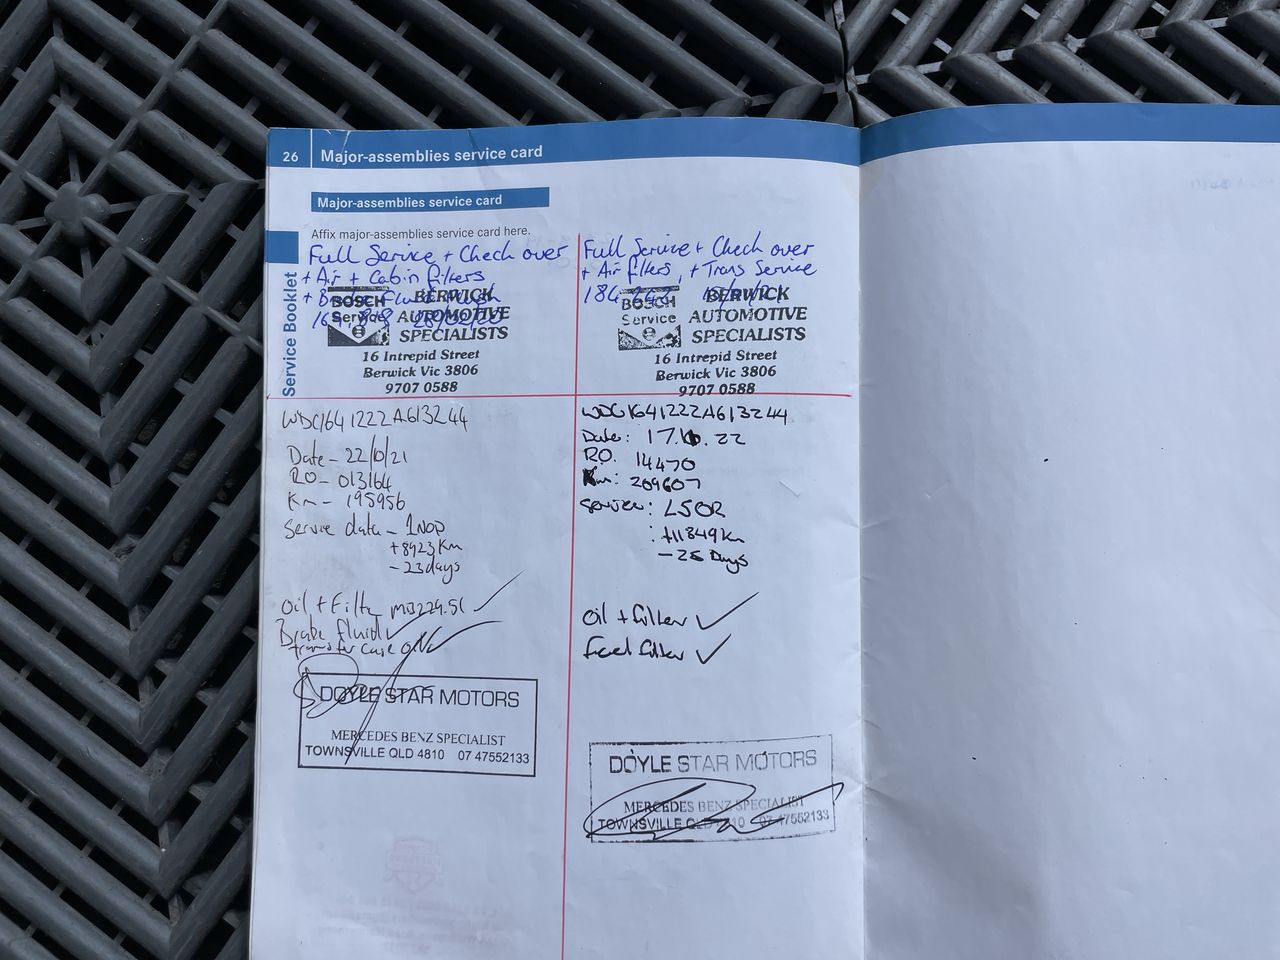 26 Major-assemblies service card
Major-assemblies service card
Affix major-assemblies service card here.
Service Booklet
Full Service + Check over
+ Air + Cabin filters
+ Brake Fluid flush
BOSCH Service
BERWICK
AUTOMOTIVE
SPECIALISTS
16 Intrepid Street
Berwick Vic 3806
9707 0588
Full Service + Check over
+ Air filters, + Trans Service
BOSCH Service
BERWICK
AUTOMOTIVE
SPECIALISTS
16 Intrepid Street
Berwick Vic 3806
9707 0588
WDC1641222A613244
Date - 22/10/21
RO - 013164
Km - 195956
Service data - 1NOD
+8923Km
- 23days
Oil + Filter MB229.51 ✓
Brake fluid ✓
transfer case oil ✓
DOYLE STAR MOTORS
MERCEDES BENZ SPECIALIST
TOWNSVILLE QLD 4810 07 47552133
WDC1641222A613244
Date: 22
RO: 14470
Km: 209607
Service: LSOR
: +11849km
- 25 Days
Oil + filter ✓
Fuel filter ✓
DOYLE STAR MOTORS
MERCEDES BENZ SPECIALIST
TOWNSVILLE QLD 4810 07 47552133